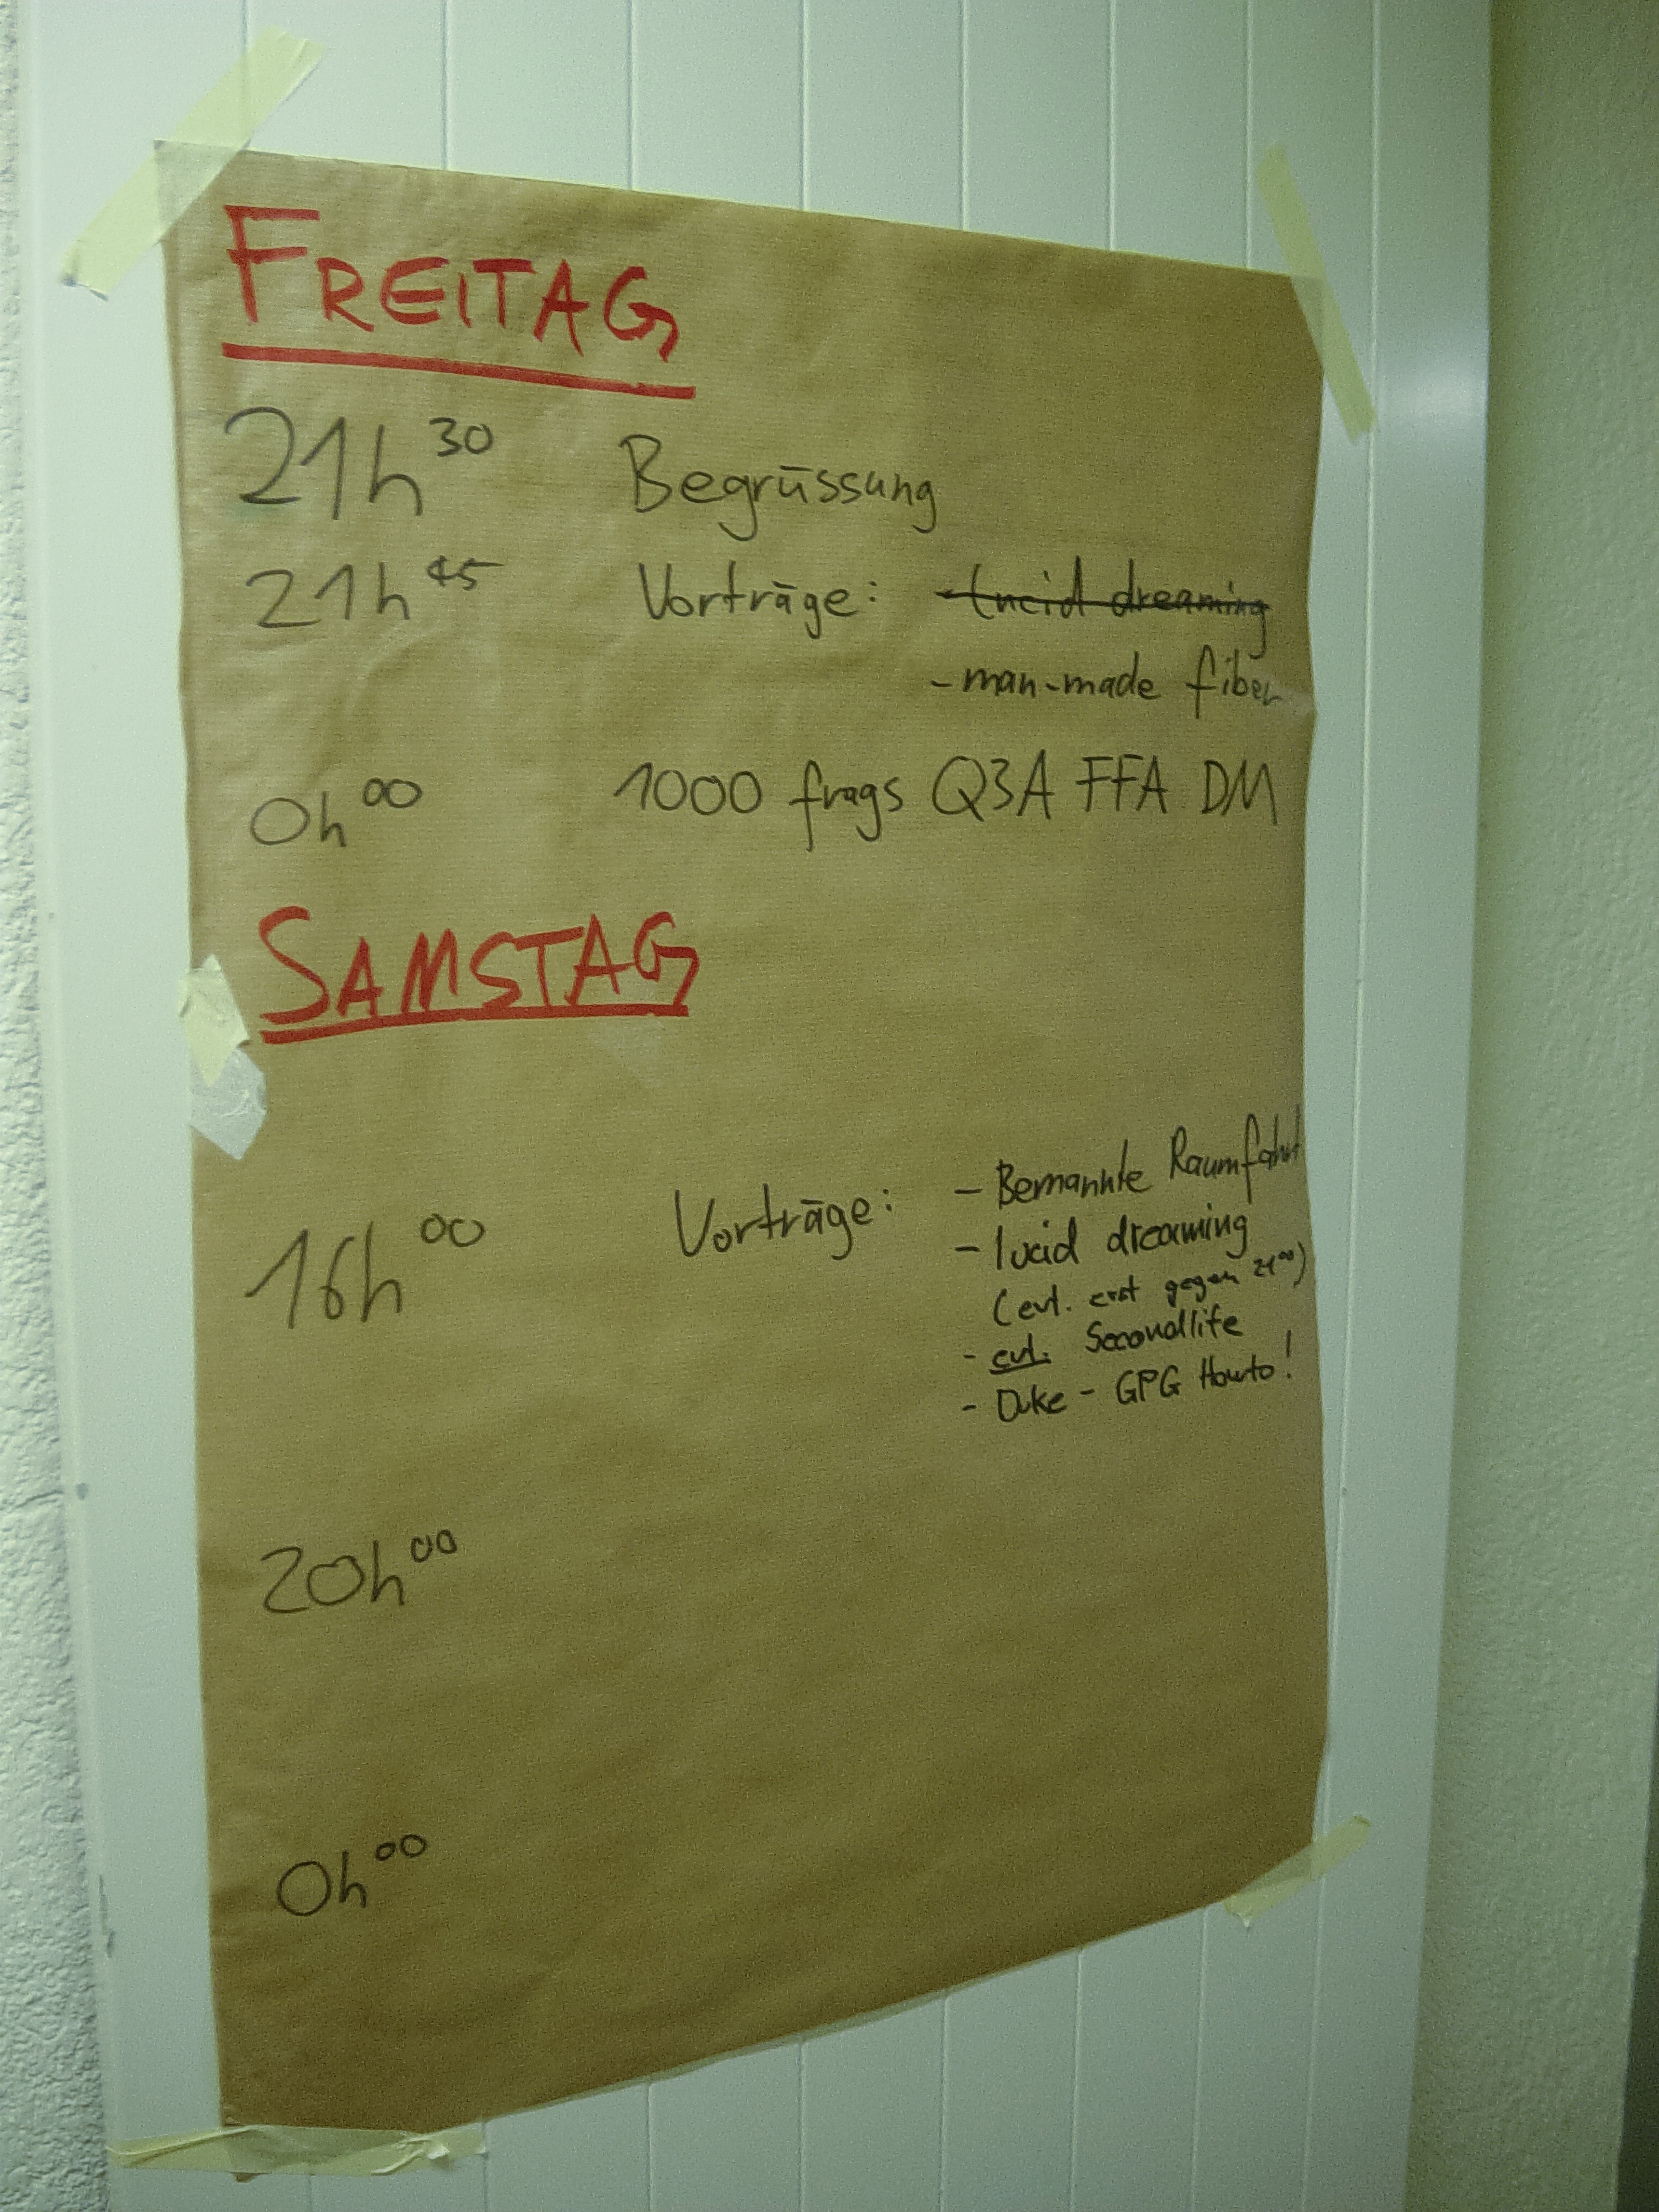 FREITAG
21h30 Begrüssung
21h45 Vorträge: - lucid dreaming
- man-made fiber
0h00 1000 frags Q3A FFA DM
SAMSTAG
16h00 Vorträge: - Bemannte Raumfahrt
- lucid dreaming
(evt. erst gegen 2100)
- evt. Secondlife
- Duke - GPG Howto!
20h00
0h00